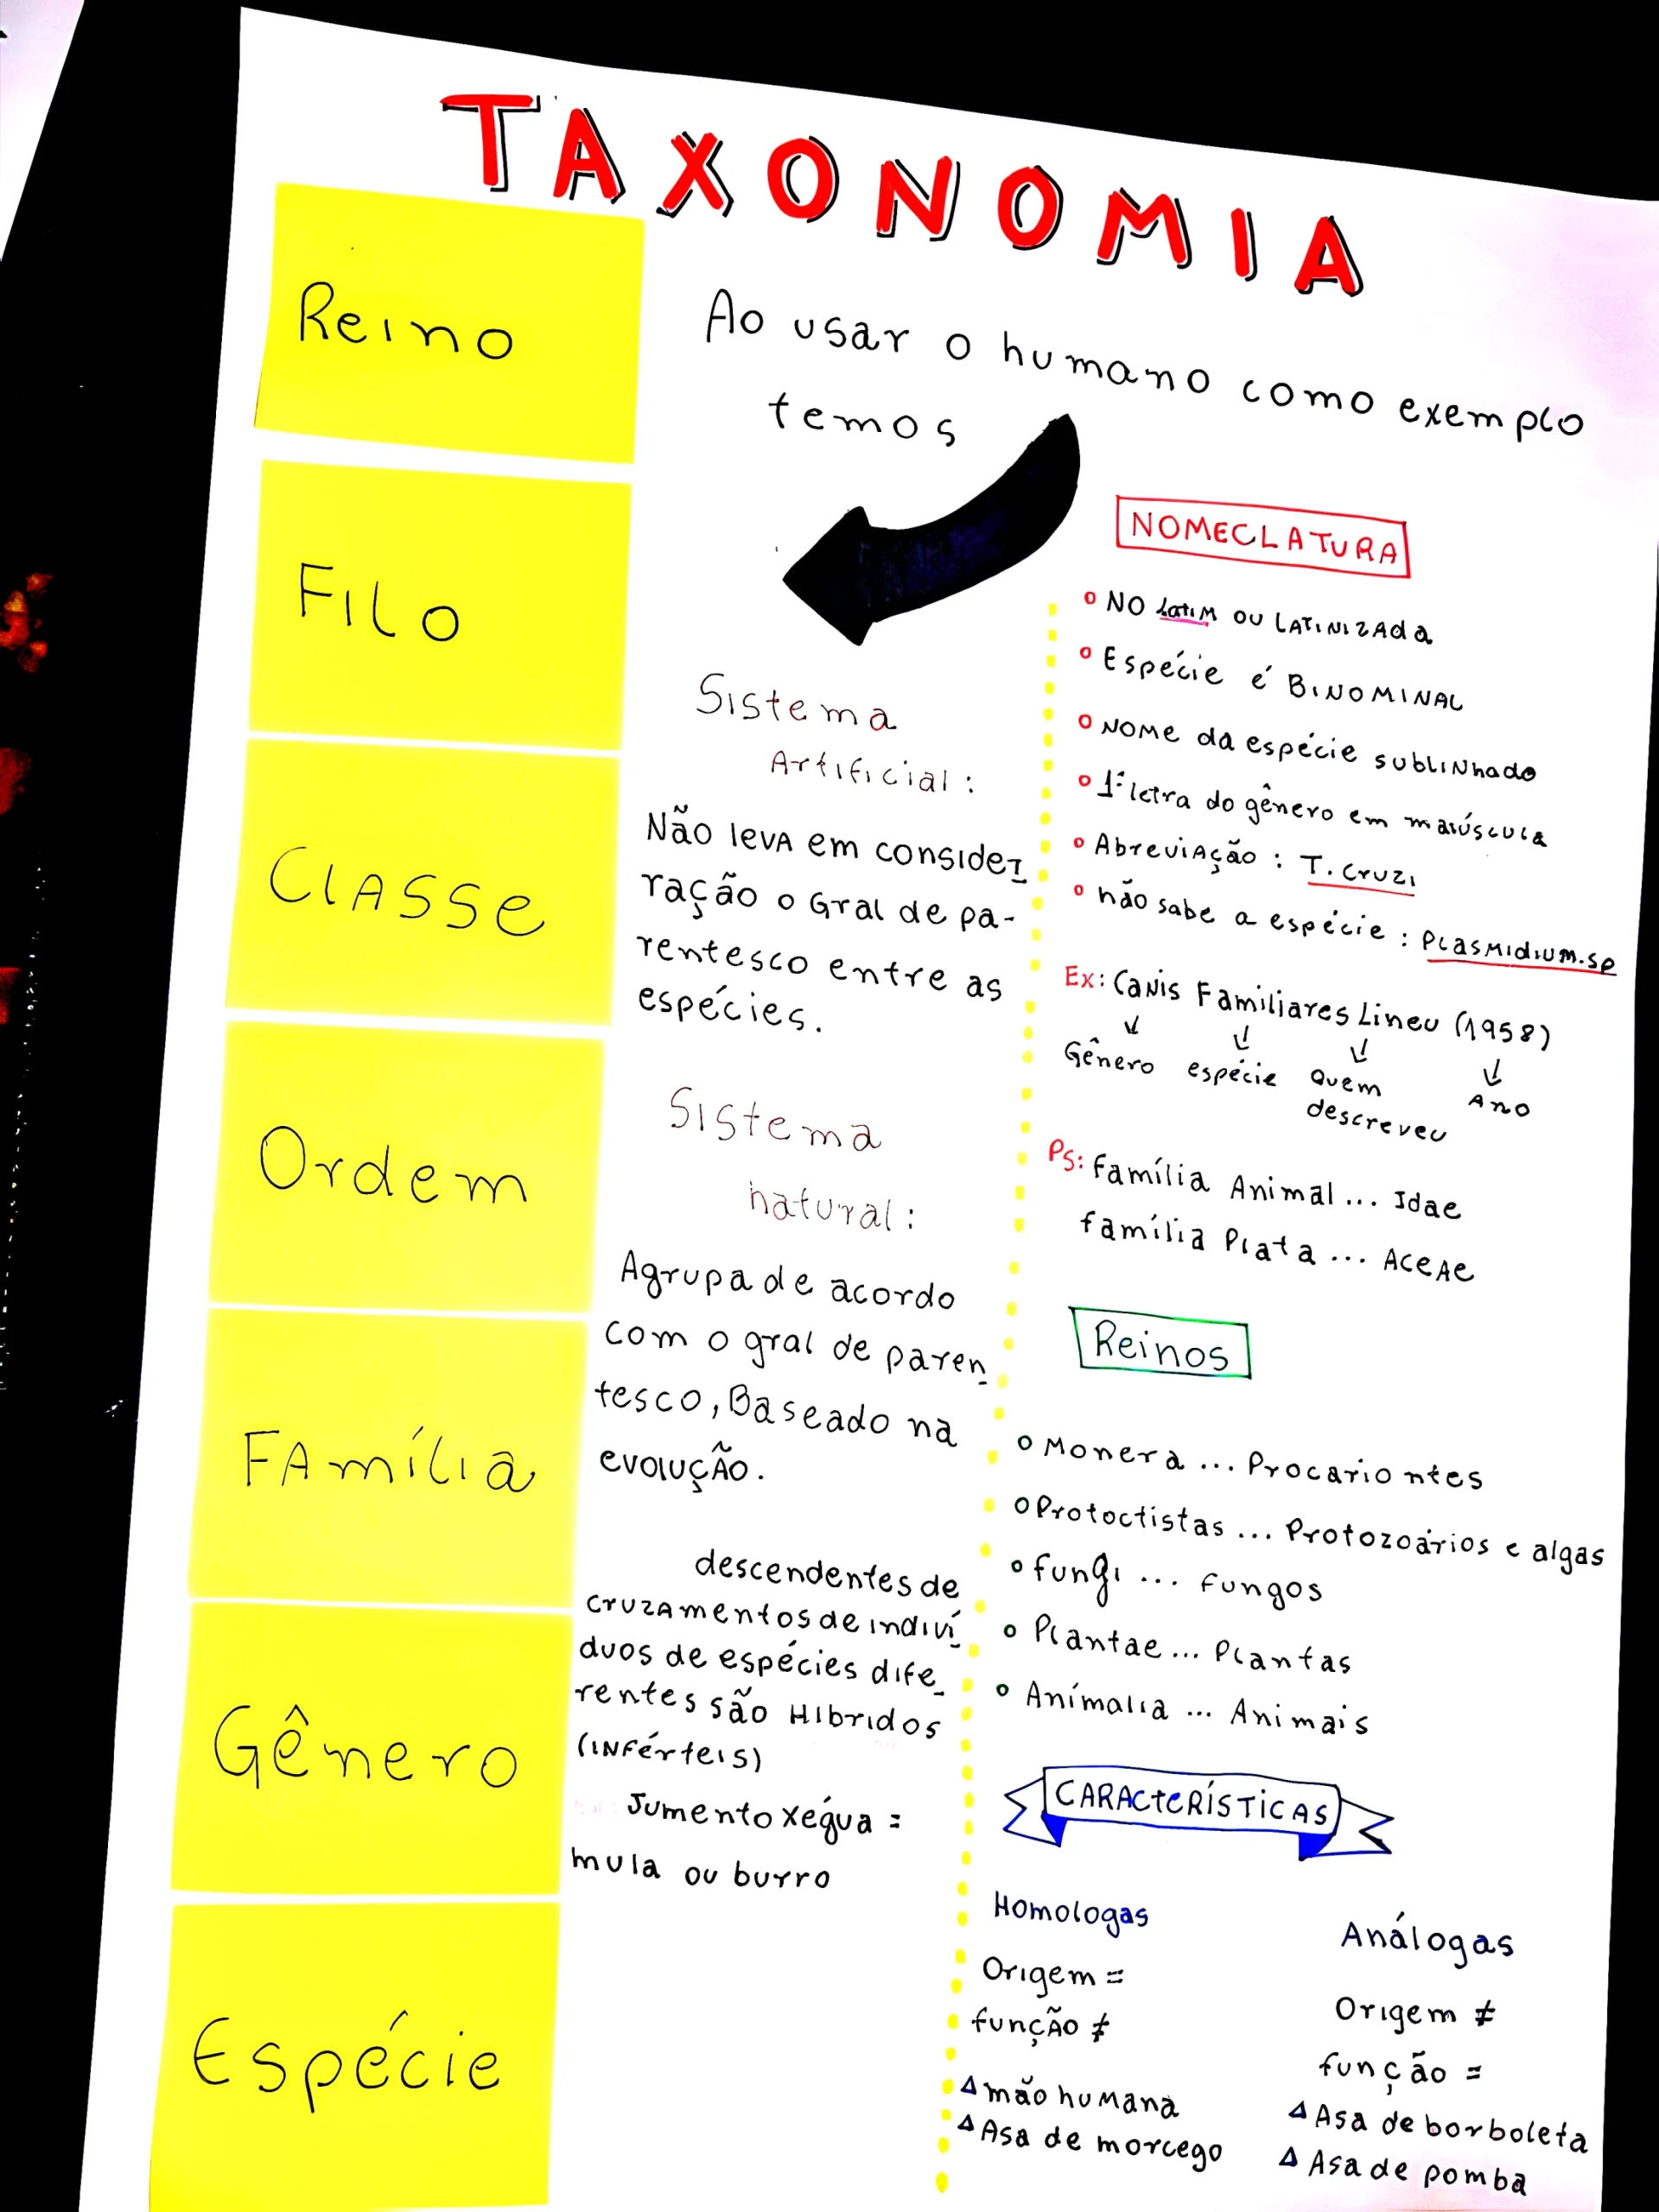 TAXONOMIA
Reino
Filo
Classe
Ordem
Família
Gênero
Espécie
Ao usar o humano como exemplo
temos
Sistema
Artificial:
Não leva em conside-
ração o Gral de pa-
rentesco entre as
espécies.
Sistema
natural:
Agrupa de acordo
com o gral de paren-
tesco, Baseado na
evolução.
descendentes de
cruzamentos de indiví-
duos de espécies dife-
rentes são Híbridos
(inférteis)
Jumento x égua =
mula ou burro
NOMECLATURA
No Latim ou Latinizada
Espécie é Binominal
Nome da espécie sublinhado
1ª letra do gênero em maiúscula
Abreviação: T. Cruzi
não sabe a espécie: Plasmidium.sp
Ex: Canis Familiares Lineu (1958)
Gênero espécie Quem Ano
descreveu
Ps: Família Animal... Idae
família Plata... Aceae
Reinos
Monera... Procariontes
Protoctistas... Protozoários e algas
fungi... Fungos
Plantae... Plantas
Anímalia... Animais
CARACTERÍSTICAS
Homologas
Origem =
função ≠
∆ mão humana
∆ Asa de morcego
Análogas
Origem ≠
função =
∆ Asa de borboleta
∆ Asa de pomba